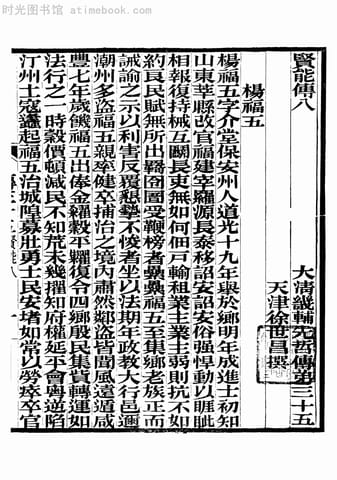 时光图书馆 - atimebook.com
賢能傳八 大清畿輔先哲傳第三十五
天津徐世昌撰
楊福五
楊福五字介堂保安州人道光十九年舉於鄉明年成進士初知
山東莘縣改官福建宰羅源長泰移詔安詔安俗强悍動以睚眦
相報復持械互鬭長吏無如何佃戶輸租業主業主弱則抗不如
約良民賦無所出羈囹圄受鞭榜者纍纍福五至集鄉老族正而
誡諭之示以利害反覆懇摯不悛者坐以法期年政教大行邑邇
潮州多盜福五親率健卒捕治之境内肅然鄰盜皆聞風遠遁咸
豐七年歲饑福五出俸金糴穀平糶復令四鄉殷民集貲轉運如
法行之一時穀價頓減民不知荒未幾擢知府權延平會粤逆陷
汀州土寇蠭起福五治城隍募壯勇士民安堵如常以勞瘁卒官